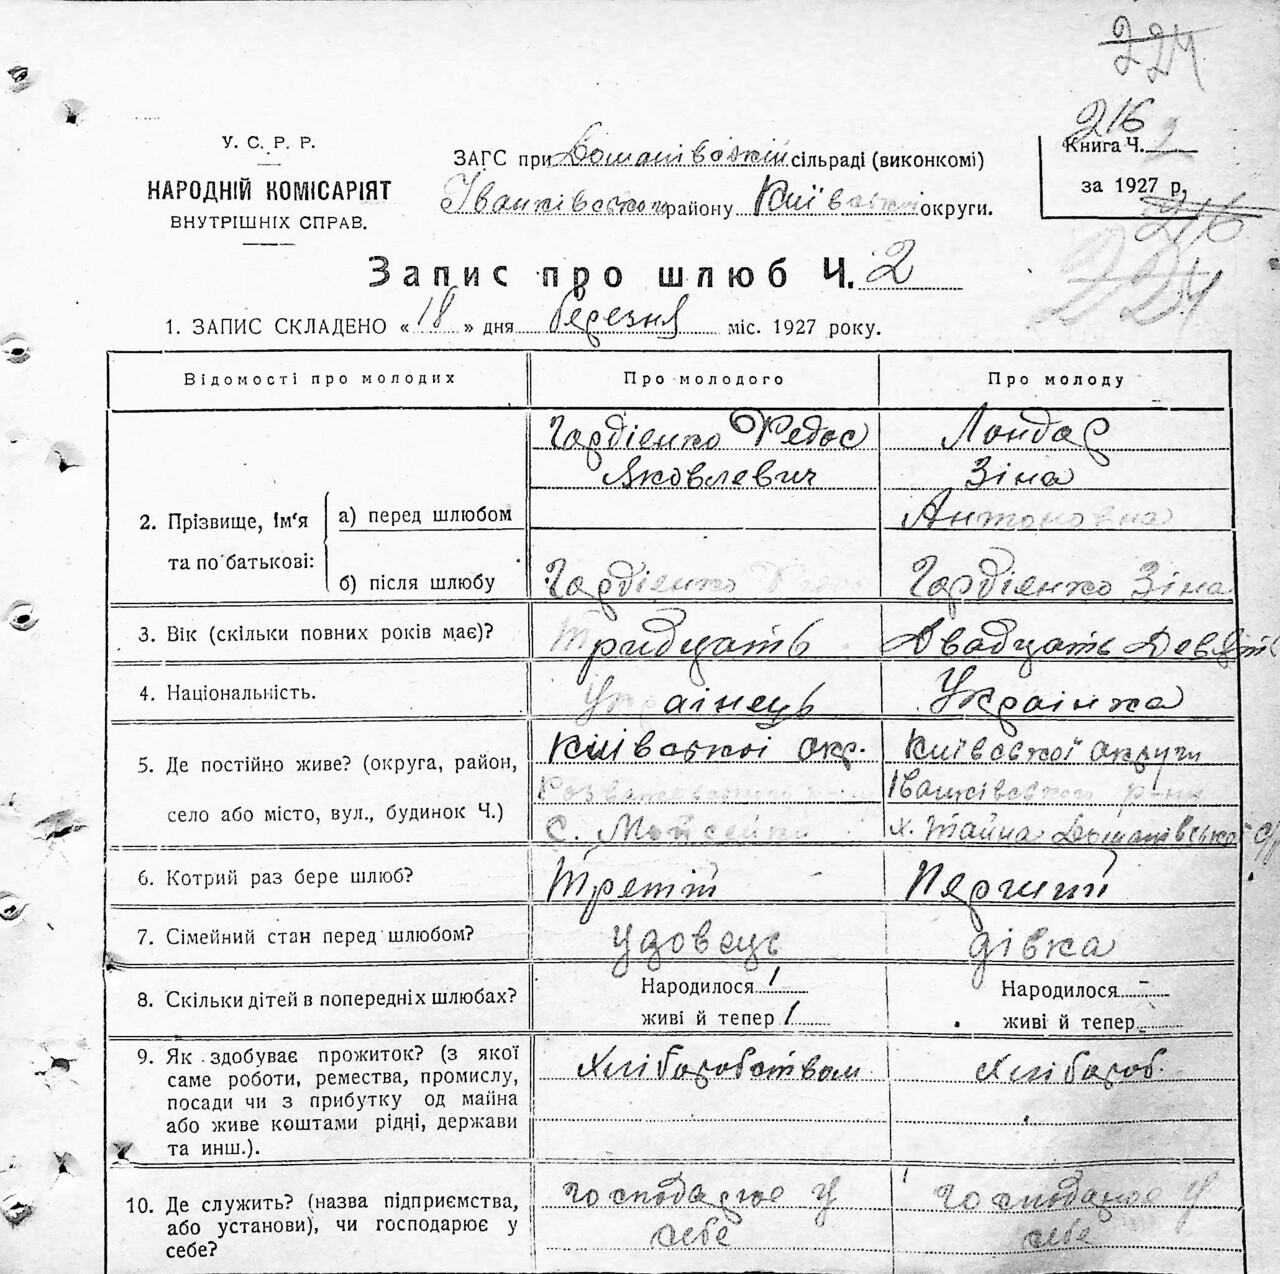 224
216
У. С. Р. Р.
НАРОДНІЙ КОМІСАРІЯТ
ВНУТРІШНІХ СПРАВ.
ЗАГС при сільраді (виконкомі)
Іванківського району Київської округи.
Книга Ч. 2
за 1927 р.
216
224
Запис про шлюб Ч. 2
1. ЗАПИС СКЛАДЕНО «18» дня березня міс. 1927 року.
Відомості про молодих Про молодого Про молоду
2. Прізвище, ім'я та по батькові:
а) перед шлюбом
Гардіенко Федос
Яковлевич
Лондар
Зіна
Антоновна
б) після шлюбу
Гардіенко Федос
Гардіянко Зіна
3. Вік (скільки повних років має)?
Тридцать
Двадцать Девять
4. Національність.
Украінець
Украінка
5. Де постійно живе? (округа, район,
село або місто, вул., будинок Ч.)
Київськоі окр.
с.
Київської округи
Іванківського р-ну
х.
6. Котрий раз бере шлюб?
Третій
Перший
7. Сімейний стан перед шлюбом?
Удовець
дівка
8. Скільки дітей в попередніх шлюбах?
Народилося 1
живі й тепер 1
Народилося -
живі й тепер -
9. Як здобуває прожиток? (з якої
саме роботи, ремества, промислу,
посади чи з прибутку од майна
або живе коштами рідні, держави
та инш.).
Хліборобством
Хлібороб.
10. Де служить? (назва підприємства,
або установи), чи господарює у
себе?
Господарює у
себе
Господарює у
себе